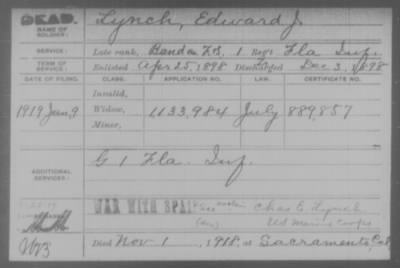 DEAD.
NAME OF SOLDIER: Lynch, Edward J.
SERVICE: Late rank, 1 Reg't Fla Inf.
TERM OF SERVICE: Enlisted Apr 25, 1898 Discharged Dec 3, 1898
DATE OF FILING. CLASS. APPLICATION NO. LAW. CERTIFICATE NO.
Invalid,
1919 Jan 9 Widow, 1133,984 July 889,857
Minor,
ADDITIONAL SERVICES: G 1 Fla. Inf.
WAR WITH SPAIN Chas E. Lynch
US Marine Corps
Died Nov. 1, 1918, at Sacramento, Cal